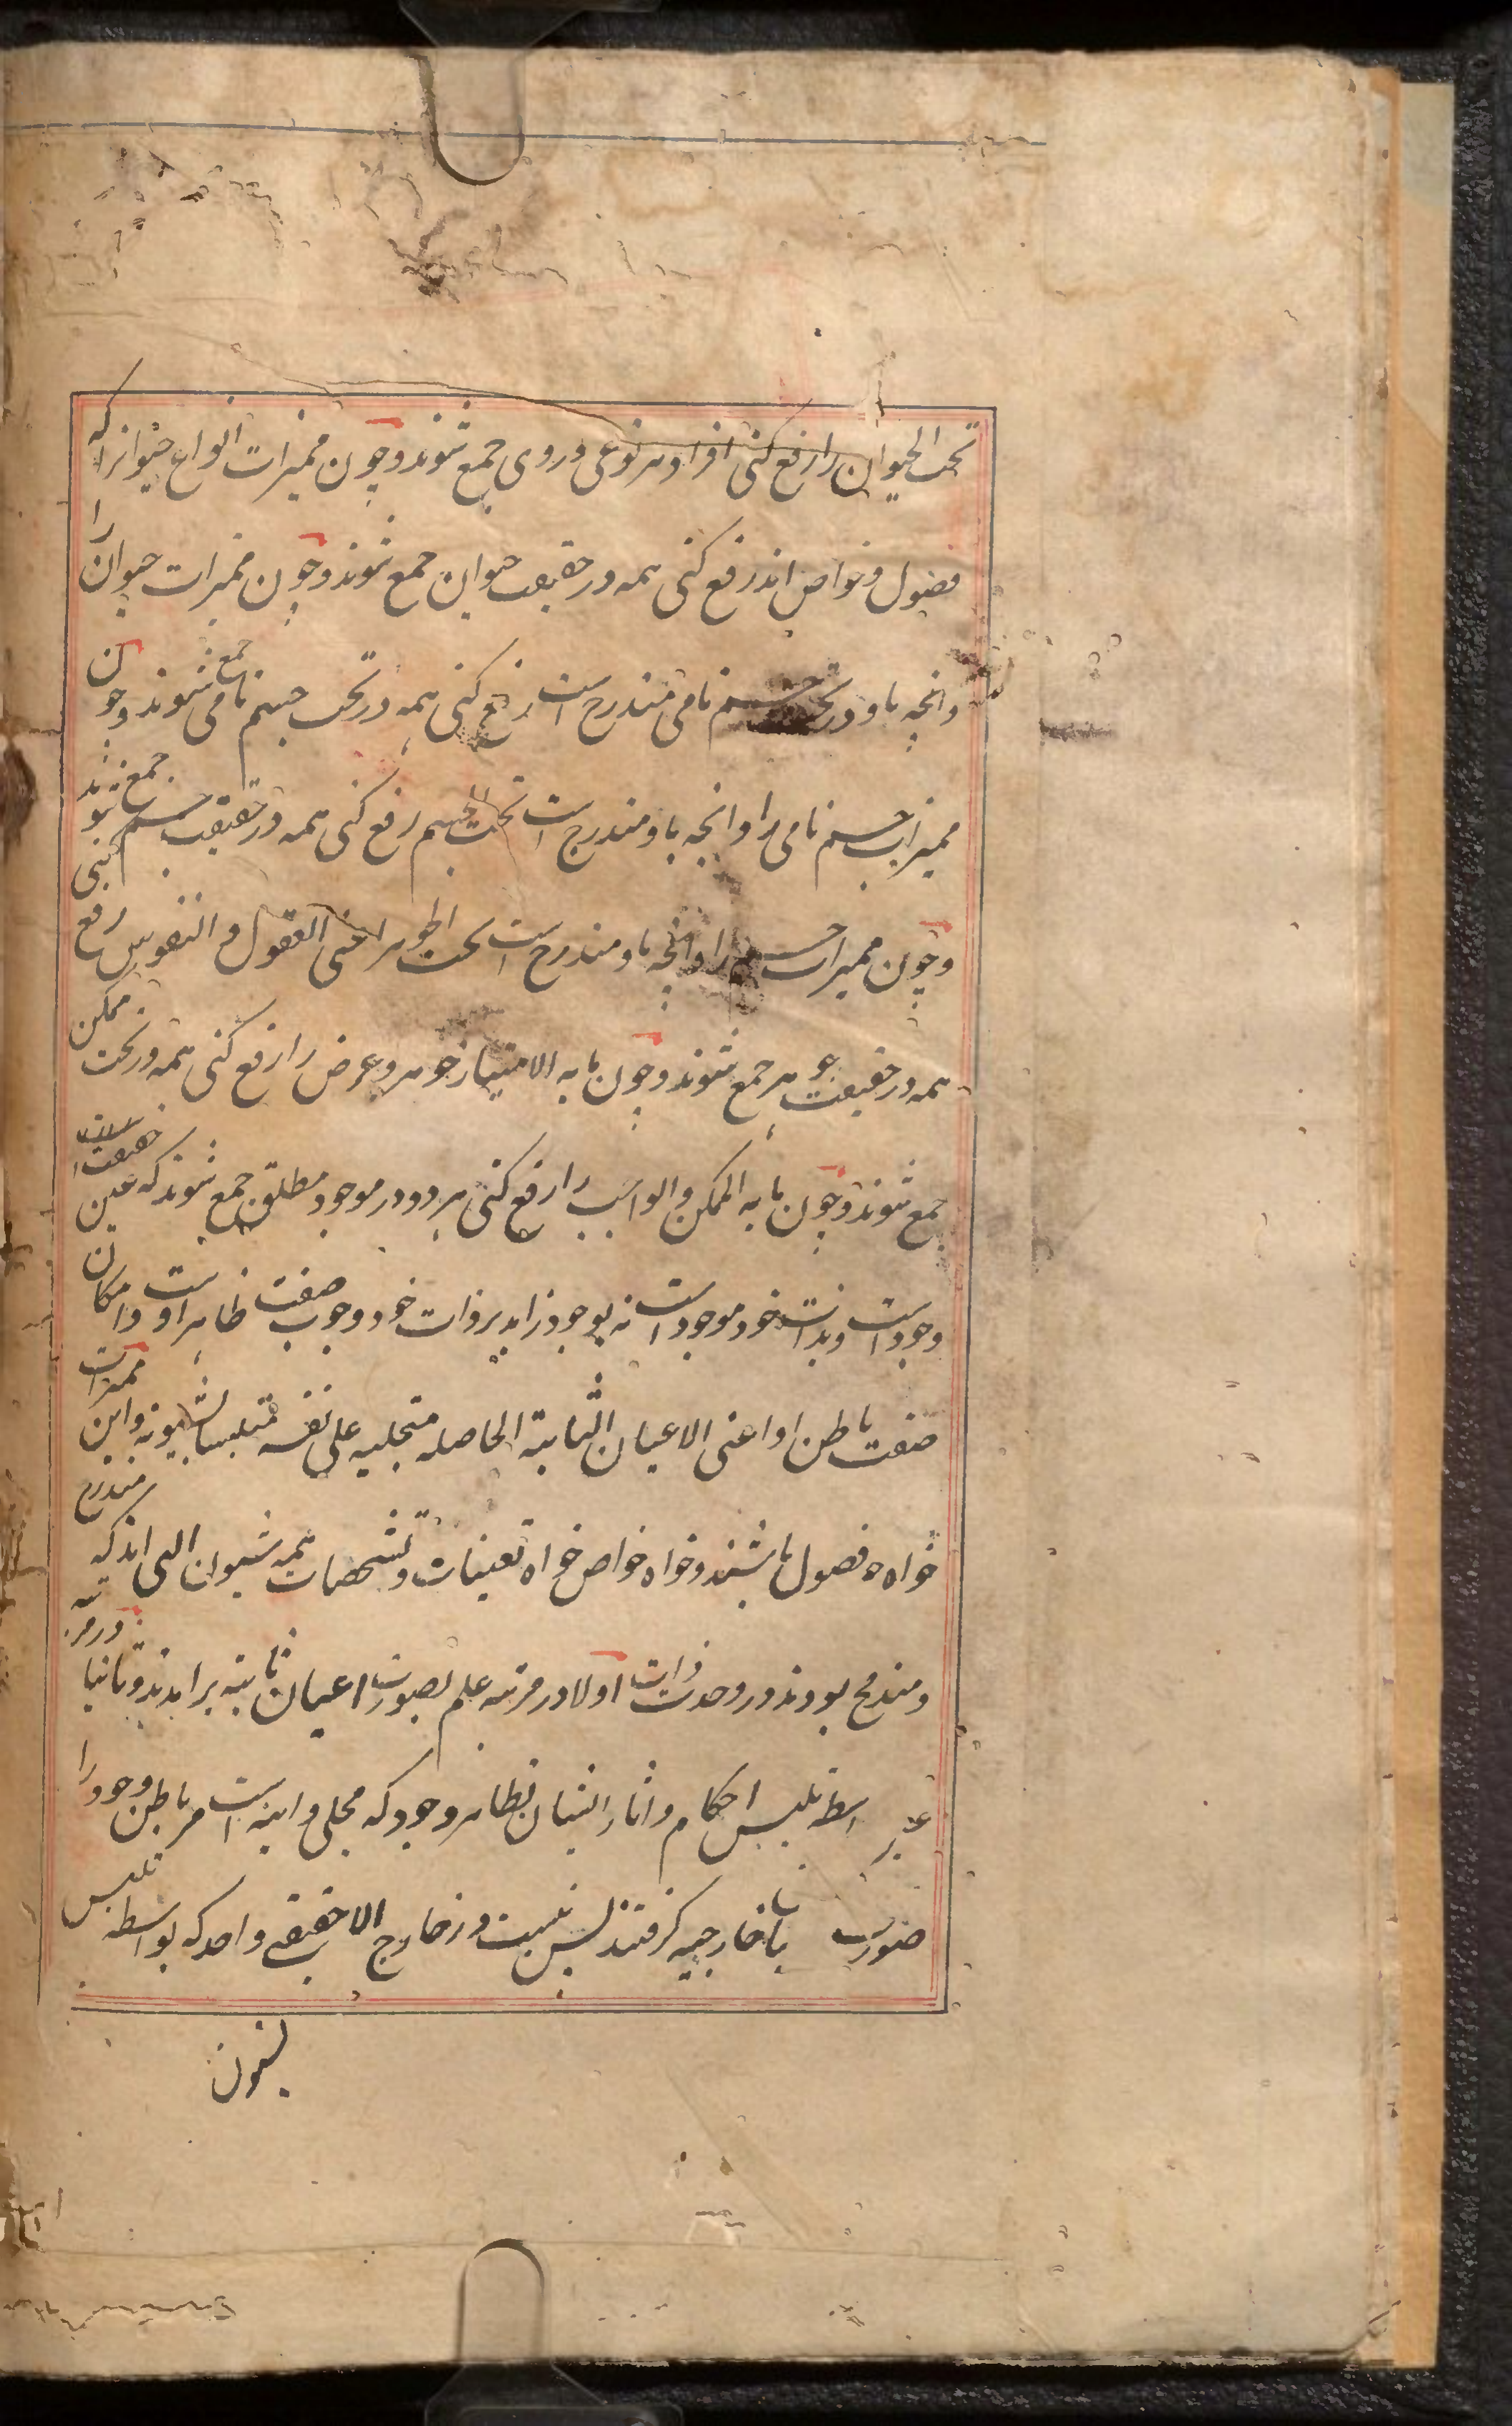 تحت الحیوان را رفع کنی افراد هر نوعی در وی جمع شوند و چون ممیزات انواع حیوانرا که
فصول و خواص اند رفع کنی همه در حقیقت حیوان جمع شوند و چون ممیزات حیوان را
وانچه با او در تحت جسم نامی مندرج است رفع کنی همه در تحت جسم نامی جمع شوند و چون
ممیزات جسم نامی را و انچه با او مندرج است تحت الجسم رفع کنی همه در حقیقت جسم جمع شوند
و چون ممیزات جسم را و انچه با او مندرج است تحت الجوهر اعنی العقول و النفوس رفع کنی
همه در حقیقت جوهر جمع شوند و چون ما به الامتیاز جوهر و عرض را رفع کنی همه در تحت ممکن
جمع شوند و چون ما به الممکن و الواجب را رفع کنی هر دو در موجود مطلق جمع شوند که عین حقیقت
وجود است و بذات خود موجود است نه بوجود زاید بر ذات خود و وجوب صفت ظاهر اوست و امکان
صفت باطن او اعنی الاعیان الثابتة الحاصله متجلیه علی نفسه متلبسا بشیونه و این ممیزات
خواه فصول باشند و خواه خواص خواه تعینات و تشخصات همه شیون الهی اند که مندرج
و مندمج بودند در وحدت ذات اولا در مرتبه علم بصورت اعیان ثابته برامدند و ثانیا در مرتبه
عین اسطه تلبس احکام و اثار ایشان بظاهر وجود که مجلی و اینه است مر باطن وجود را
صورت خارجیه گرفتند پس نیست در خارج الا حقیقی واحد که بواسطه تلبس
بشون